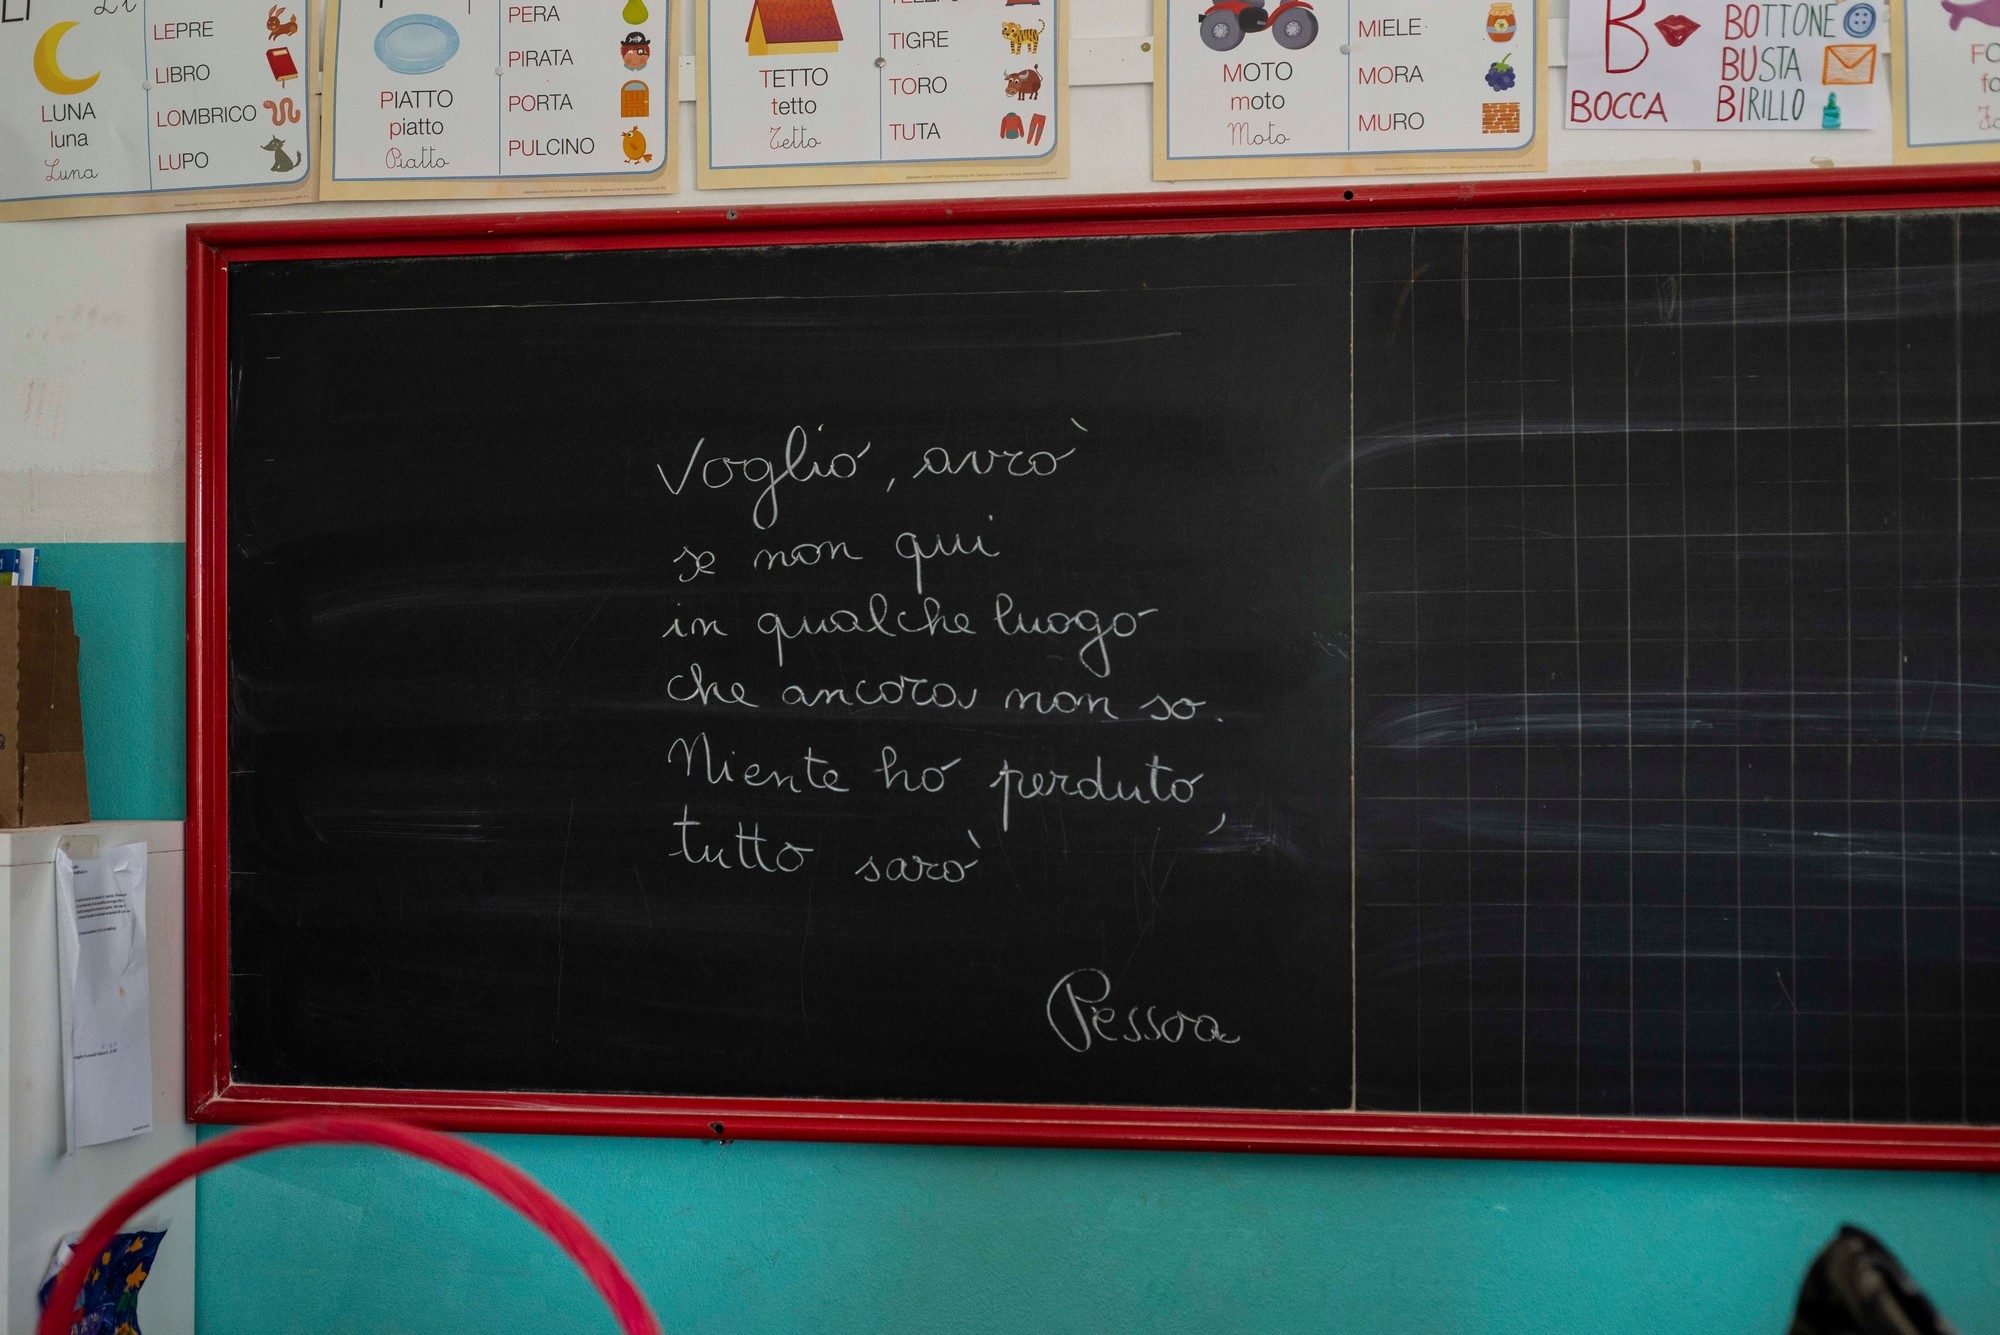 LEPRE
LIBRO
LOMBRICO
LUPO
LUNA
luna
Luna
PERA
PIRATA
PORTA
PULCINO
PIATTO
piatto
Piatto
TIGRE
TORO
TUTA
TETTO
tetto
Tetto
MIELE
MORA
MURO
MOTO
moto
Moto
B
BOCCA
BOTTONE
BUSTA
BIRILLO
Voglio, avrò
se non qui
in qualche luogo
che ancora non so.
Niente ho perduto,
tutto sarò
Pessoa